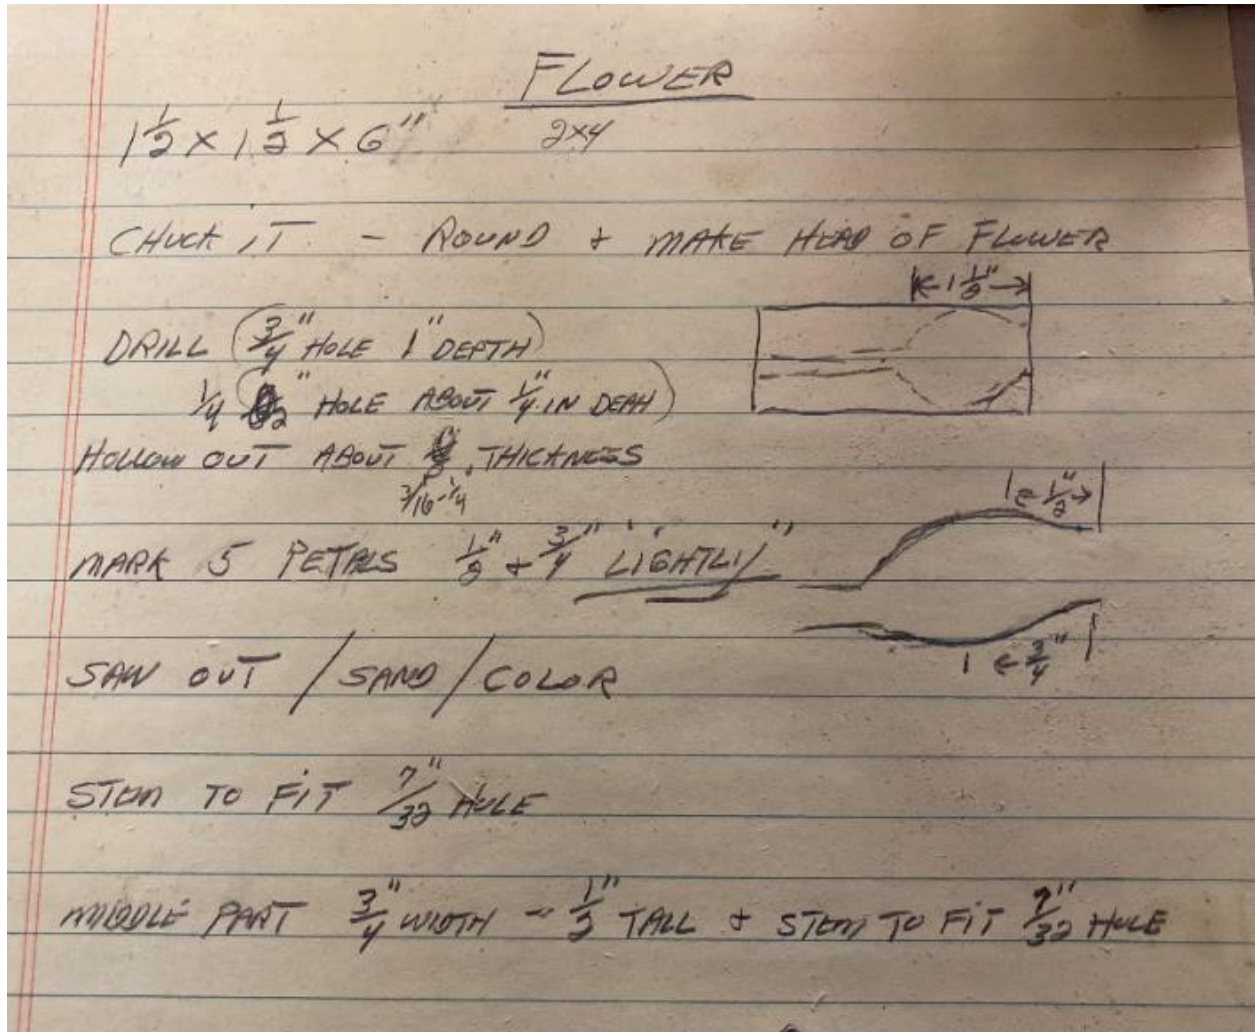 FLOWER
1 1/2 x 1 1/2 x 6"
2x4
CHUCK IT - ROUND + MAKE HEAD OF FLOWER
1 1/2"
DRILL (3/4" HOLE 1" DEPTH)
1/4 " HOLE ABOUT 1/4" IN DEAH)
HOLLOW OUT ABOUT THICKNESS
3/16-1/4
1/2"
MARK 5 PETALS 1/2" + 3/4" "LIGHTLY"
3/4"
SAW OUT / SAND / COLOR
STEM TO FIT 7/32" HOLE
MIDDLE PART 3/4" WIDTH - 1/2" TALL + STEM TO FIT 7/32" HOLE